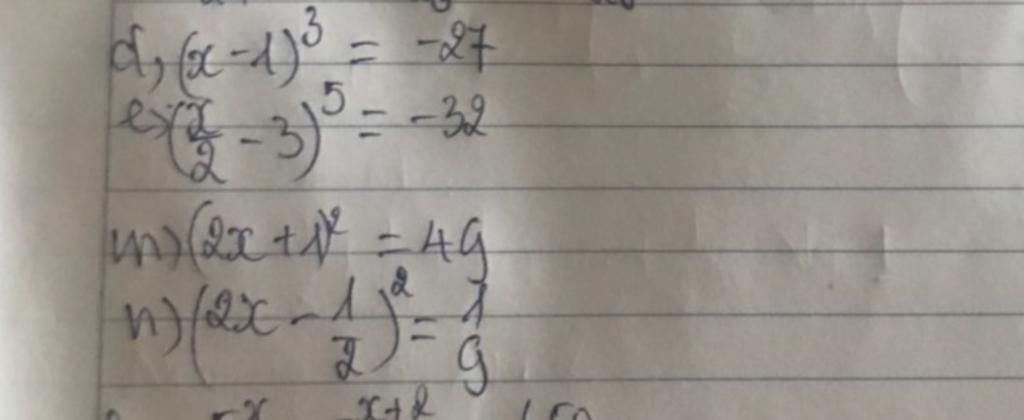 d, (x-1)³ = -27
e) (x/2 - 3)⁵ = -32
m) (2x+1)² = 49
n) (2x - 1/2)² = 1/9
5ˣ x+2 650